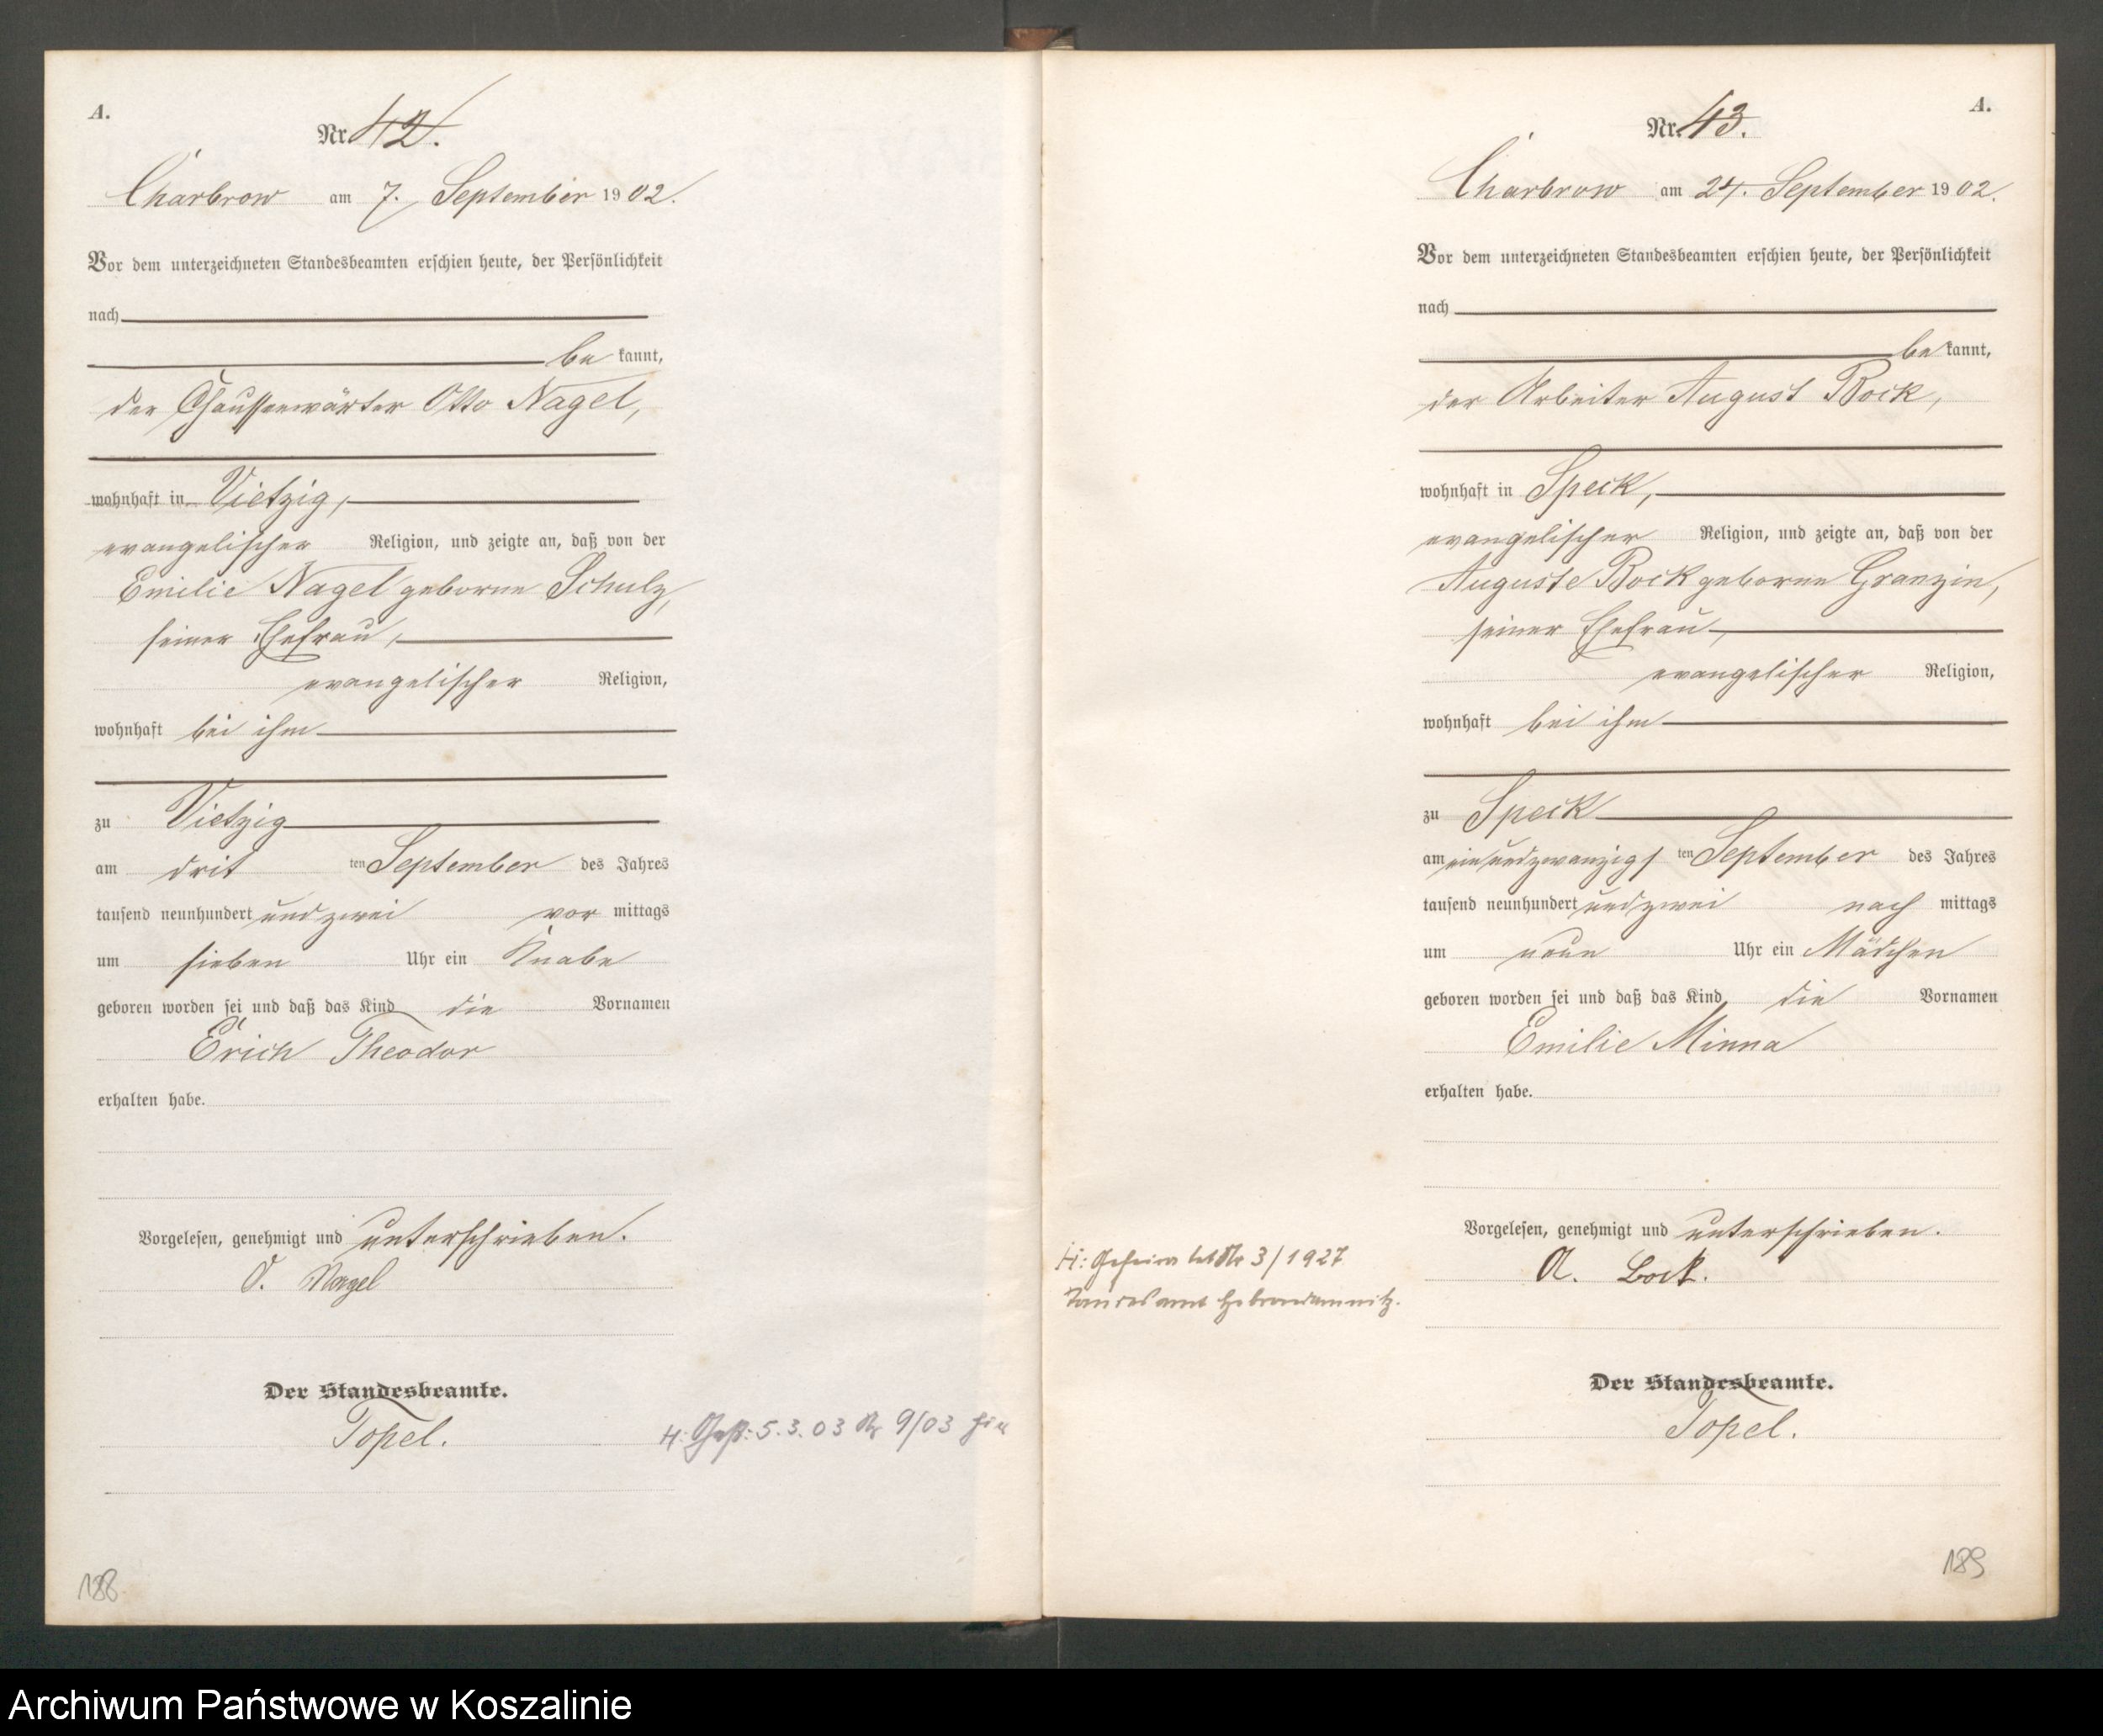 A.
Nr. 42.
Charbrow am 7. September 1902.
Vor dem unterzeichneten Standesbeamten erschien heute, der Persönlichkeit
nach
be kannt,
der Chausseewärter Otto Nagel,
wohnhaft in Vietzig,
evangelischer Religion, und zeigte an, daß von der
Emilie Nagel geborne Schulz,
seiner Ehefrau,
evangelischer Religion,
wohnhaft bei ihm
zu Vietzig
am drit ten September des Jahres
tausend neunhundert und zwei vor mittags
um sieben Uhr ein Knabe
geboren worden sei und daß das Kind die Vornamen
Erich Theodor
erhalten habe.
Vorgelesen, genehmigt und unterschrieben.
O. Nagel
Der Standesbeamte.
Topel.
H: 5.3.03 Nr 9/03
188
A.
Nr. 43.
Charbrow am 24. September 1902.
Vor dem unterzeichneten Standesbeamten erschien heute, der Persönlichkeit
nach
be kannt,
der Arbeiter August Bock,
wohnhaft in Speck,
evangelischer Religion, und zeigte an, daß von der
Auguste Bock geborne Granzin,
seiner Ehefrau,
evangelischer Religion,
wohnhaft bei ihm
zu Speck
am einundzwanzigs ten September des Jahres
tausend neunhundert und zwei nach mittags
um neun Uhr ein Mädchen
geboren worden sei und daß das Kind die Vornamen
Emilie Minna
erhalten habe.
Vorgelesen, genehmigt und unterschrieben.
A. Bock.
H: Geheiratet Nr 3/1927
Standesamt
Der Standesbeamte.
Topel.
189
Archiwum Państwowe w Koszalinie